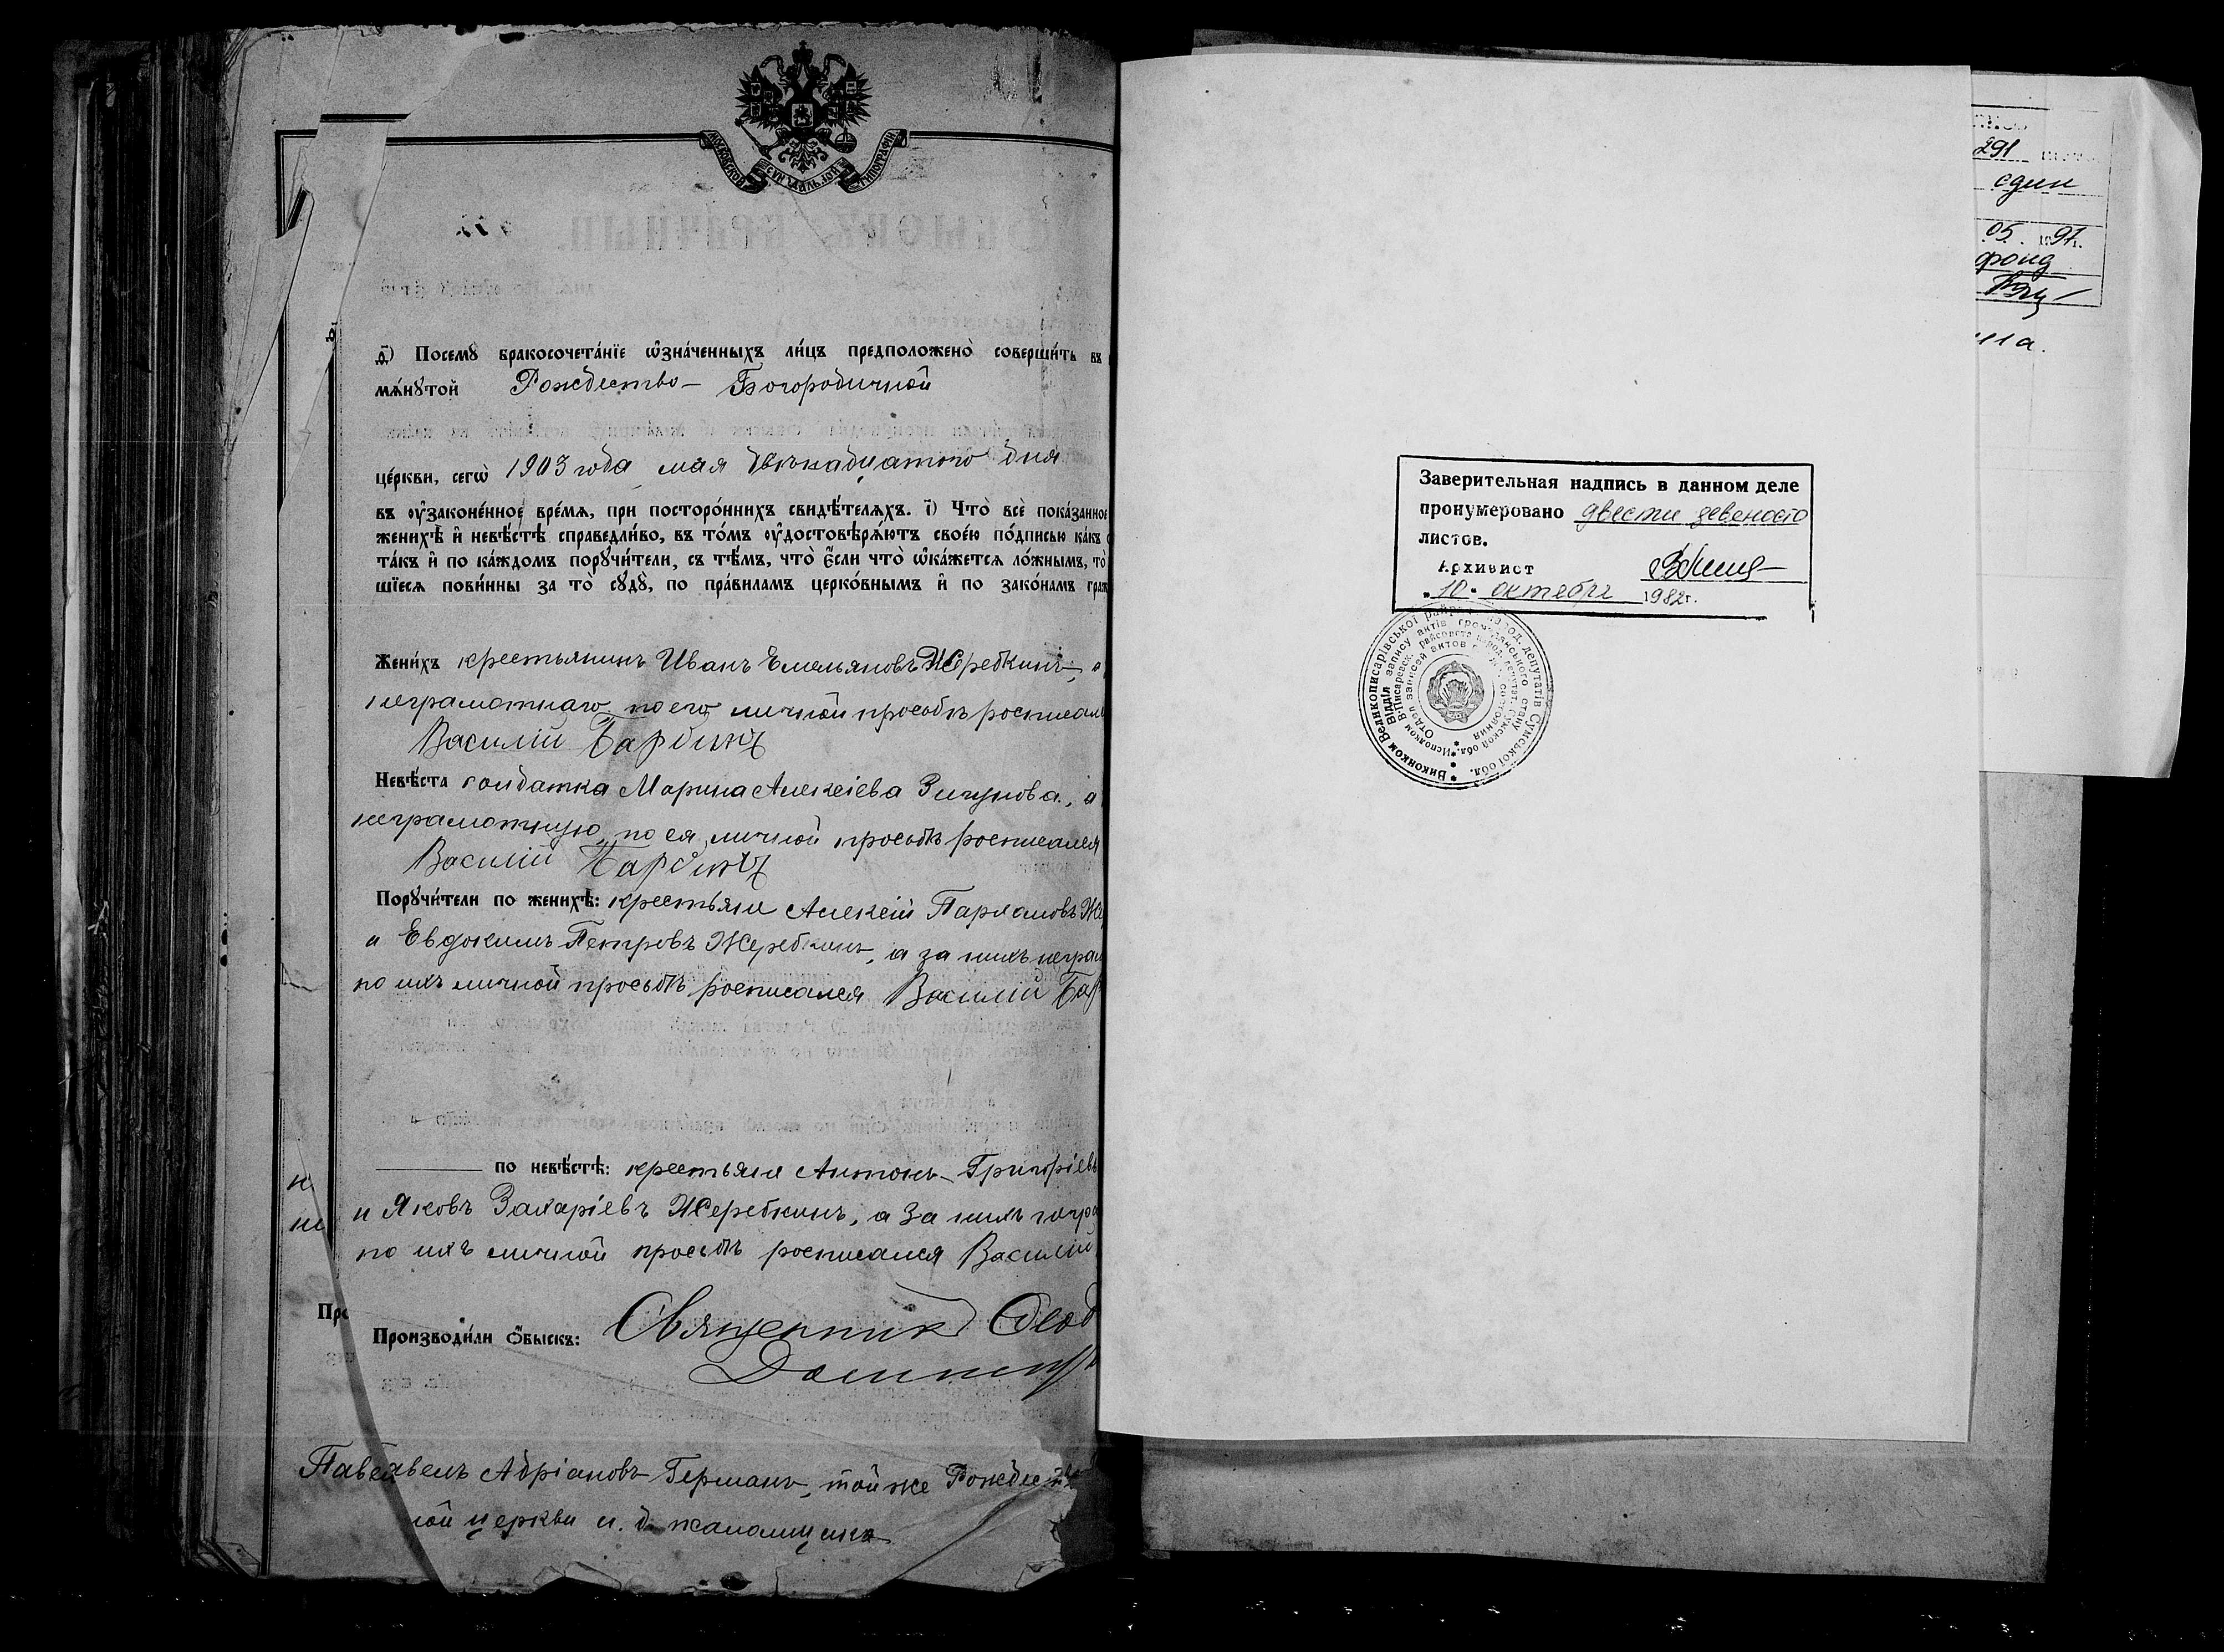 МОСКОВСКОЙ СѴНОДАЛЬНОЙ ТИПОГРАФІИ
ѳ҃) Посемꙋ̀ бракосочета́нїе ѡ҆зна́ченныхъ ли́цъ предположено̀ соверши́ть въ
мѧ́нꙋтой Рождество-Богородичной
це́ркви, сегѡ̀ 1903 года мая двѣнадцатого дня
въ ᲂу҆законе́нное вре́мѧ, при посторо́ннихъ свидѣ́телѧхъ. і҃) Что̀ всѐ пока́занное
женихѣ̀ и҆ невѣ́стѣ справедли́во, въ то́мъ ᲂу҆достовѣрѧ́ютъ свое́ю по́дписью ка́къ
та́къ и҆ по ка́ждомъ порꙋчи́тели, съ тѣ́мъ, что̀ є҆́сли что̀ ѡ҆ка́жетсѧ ло́жнымъ, то̀
шїесѧ пови́нны за то̀ сꙋдꙋ̀, по пра́виламъ церко́внымъ и҆ по зако́намъ граж
Жени́хъ крестьянинъ Иванъ Емельяновъ Жеребкинъ, а
неграмотнаго, по его личной прособѣ росписал
Василій Бардинъ
Невѣ́ста солдатка Марина Алексіева Зигунова, а
неграмотную, по ея личной просьбѣ росписался
Василій Бардинъ
Порꙋчи́тели по женихѣ̀: крестьяне Алексій Пархомовъ Же
и Евдокимъ Петровъ Жеребкинъ, а за нихъ неграм
по ихъ личной просьбѣ росписался Василій Бар
по невѣ́стѣ: крестьяне Антонъ Григоріевъ
и Яковъ Захаріевъ Жеребкинъ, а за нихъ негра
по ихъ личной просьбѣ росписался Василій
Произво́дили ѻ҆́быскъ: Священникъ Ѳеод
Павелъ Адріановъ Германъ, той же Рождест
ной церкви и. д. псаломщика
Заверительная надпись в данном деле
пронумеровано двести девеносто
листов.
Архивист
"10" октября 1982г.
Виконком Великописарівської райради народ. депутатів Сумської обл.
Відділ запису актів громадянського стану
Отдел записей актов гр. состояния
291
один
05. 1997г.
фонд